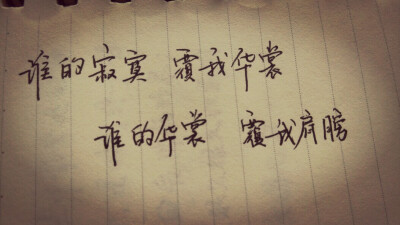 谁的寂寞 覆我华裳
谁的华裳 覆我肩膀